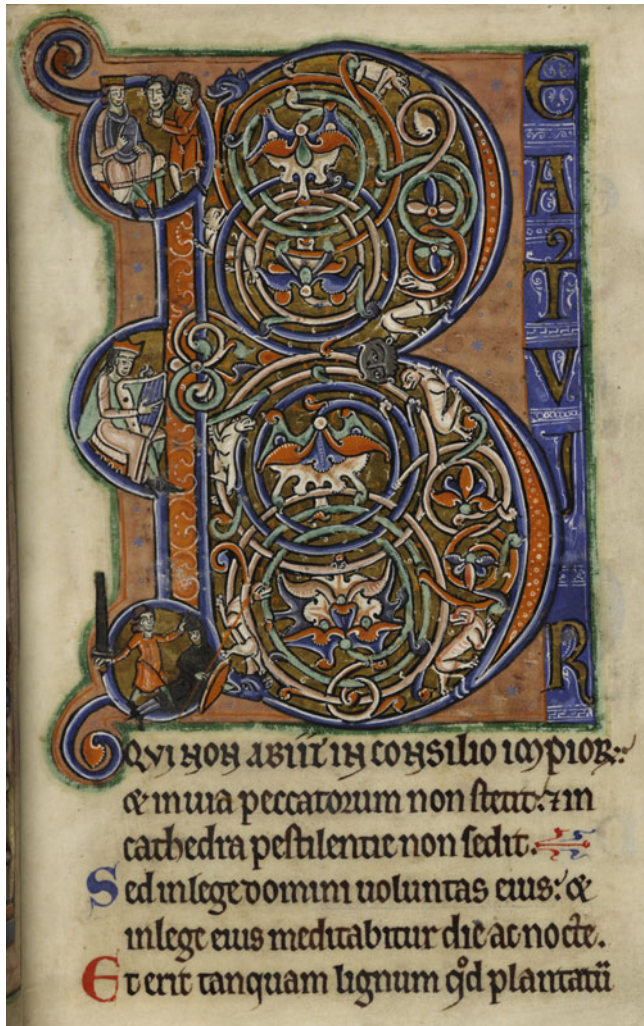 BEATVS VIR
QVI NON ABIIT IN CONSILIO IMPIOR̄:
& in uia peccatorum non stetit: ⁊ in
cathedra pestilentie non sedit.
Sed in lege domini uoluntas eius: &
in lege eius meditabitur die ac nocte.
Et erit tanquam lignum qd̄ plantatū